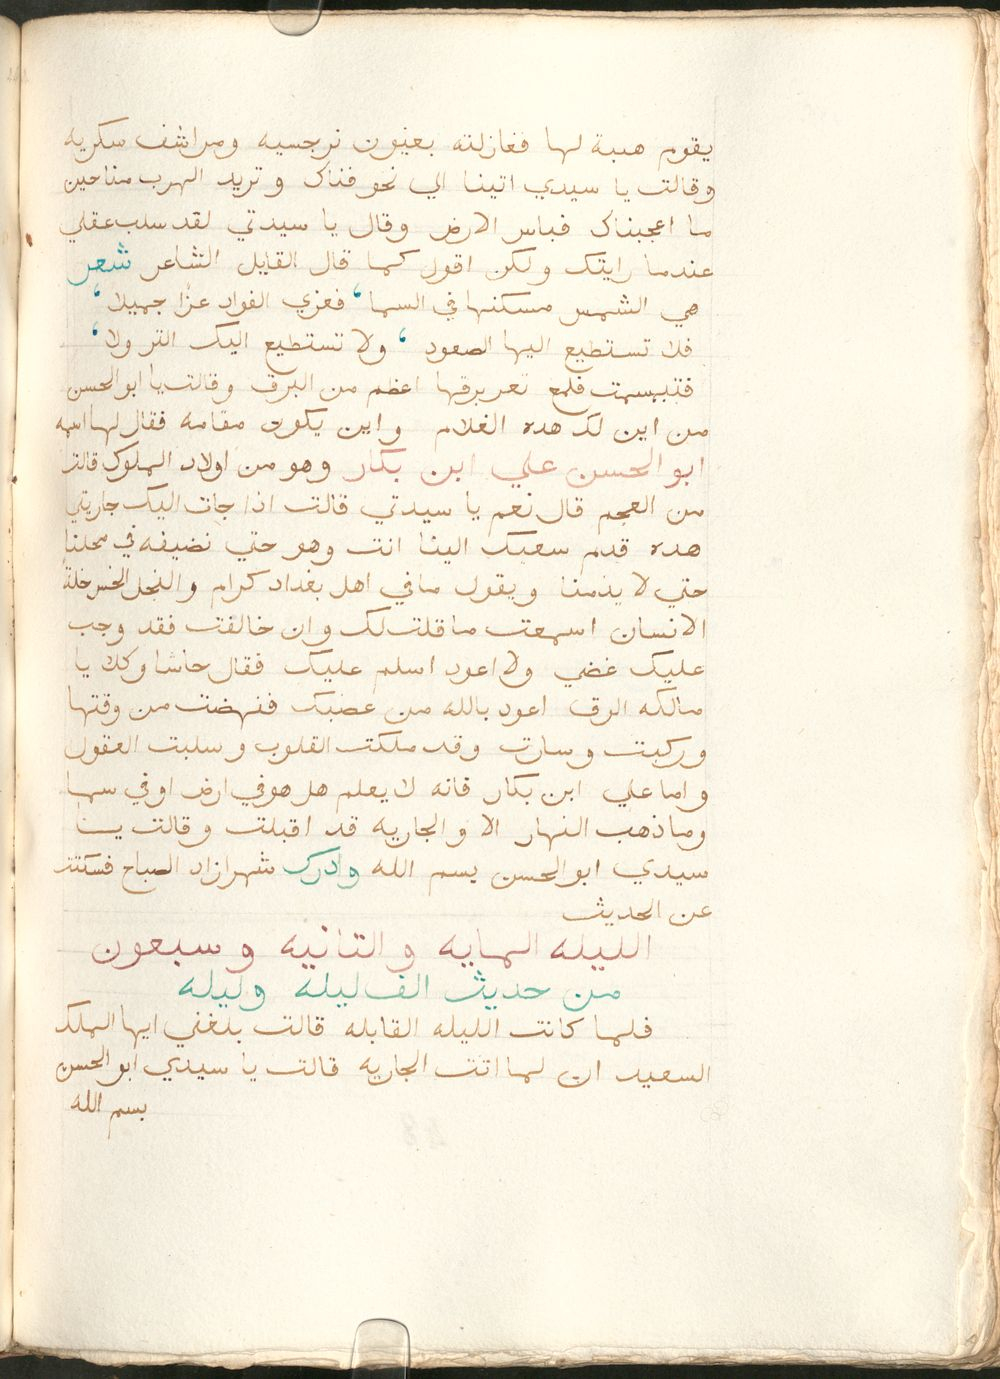 يقوم هيبة لها فغازلته بعيون نرجسيه ومراشف سكريه
وقالت يا سيدي اتينا الي نحو فناك وتريد الهرب منا حين
ما اعجبناك فباس الارض وقال يا سيدتي لقد سلب عقلي
عندما رايتك ولكن اقول كما قال القايل الشاعر شعر
هي الشمس مسكنها في السما ، فعزي الفواد عزا جميلا ،
فلا تستطيع اليها الصعود ، ولا تستطيع اليك النزولا ،
فتبسمت فلمع تغر برقها اعظم من البرق وقالت يا ابو الحسن
من اين لك هده الغلام واين يكون مقامه فقال لها اسمه
ابو الحسن علي ابن بكار وهو من اولاد الملوك قالت
من العجم قال نعم يا سيدتي قالت اذا جات اليك جاريتي
هده قدم سعيك الينا انت وهو حتي نضيفه في محلنا
حتي لا يذمنا ويقول ما في اهل بغداد كرام والنجل اخس خلة
الانسان اسمعت ما قلت لك وان خالفت فقد وجب
عليك غضبي ولا اعود اسلم عليك فقال حاشا وكلا يا
مالكه الرق اعود بالله من غضبك فنهضت من وقتها
وركبت وسارت وقد ملكت القلوب وسلبت العقول
واما علي ابن بكار فانه لا يعلم هل هو في ارض او في سما
وما ذهب النهار الا والجاريه قد اقبلت وقالت يا
سيدي ابو الحسن بسم الله وادرك شهرازاد الصباح فسكتت
عن الحديث
الليله المايه والتانيه وسبعون
من حديث الف ليله وليله
فلما كانت الليله القابله قالت بلغني ايها الملك
السعيد ان لما اتت الجاريه قالت يا سيدي ابو الحسن
بسم الله